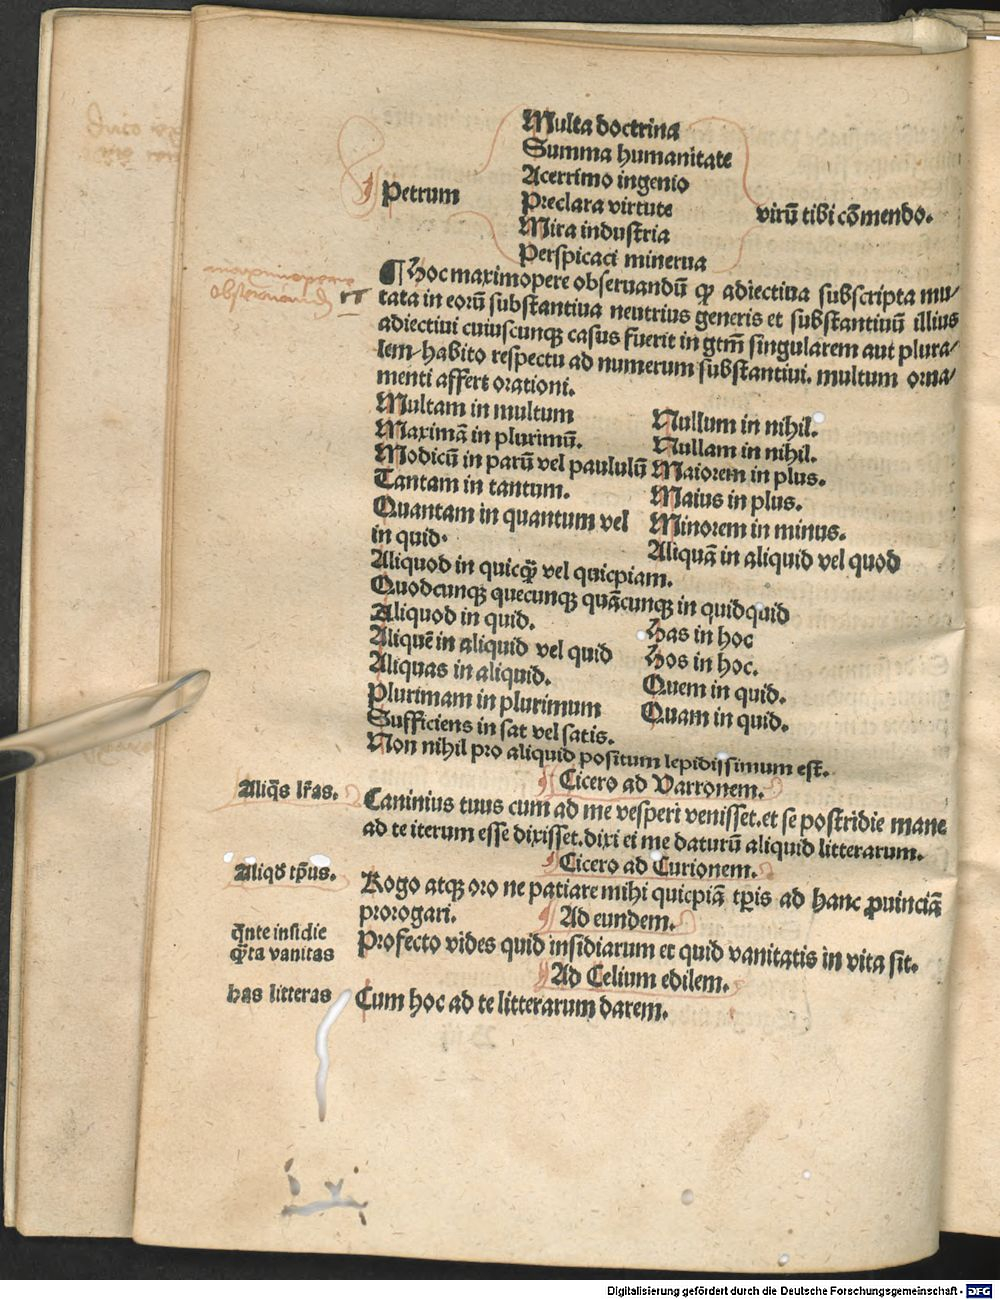 Multa doctrina
Summa humanitate
Acerrimo ingenio
Petrum
Preclara virtute
virū tibi cōmendo.
Mira industria
Perspicaci minerua
¶ Hoc maximopere obseruandū ꝙ adiectiua subscripta mu/
tata in eorū substantiua neutrius generis et substantiuū illius
adiectiui cuiuscunqꝫ casus fuerit in gtm̄ singularem aut plura/
lem habito respectu ad numerum substantiui. multum orna/
menti affert orationi.
Multam in multum
Maximā in plurimū.
Modicū in parū vel paululū
Tantam in tantum.
Quantam in quantum vel
in quid.
Nullum in nihil.
Nullam in nihil.
Maiorem in plus.
Maius in plus.
Minorem in minus.
Aliquā in aliquid vel quod
Aliquod in quicꝙ̄ vel quicpiam.
Quodcunqꝫ quecunqꝫ quācunqꝫ in quidquid
Aliquod in quid.
Aliquē in aliquid vel quid
Aliquas in aliquid.
Plurimam in plurimum
Has in hoc
Hos in hoc.
Quem in quid.
Quam in quid.
Sufficiens in sat vel satis.
Non nihil pro aliquid positum lepidissimum est.
¶ Cicero ad Varronem.
Aliq̄s lr̄as.
Caninius tuus cum ad me vesperi venisset. et se postridie mane
ad te iterum esse dixisset. dixi ei me daturū aliquid litterarum.
¶ Cicero ad Curionem.
Aliqd tp̄us.
Rogo atqꝫ oro ne patiare mihi quicpiā tp̄is ad hanc ꝓuinciā
prorogari.
¶ Ad eundem.
q̄nte insidie
q̄ta vanitas
Profecto vides quid insidiarum et quid vanitatis in vita sit.
¶ Ad Celium edilem.
has litteras
Cum hoc ad te litterarum darem.
Digitalisierung gefördert durch die Deutsche Forschungsgemeinschaft - DFG